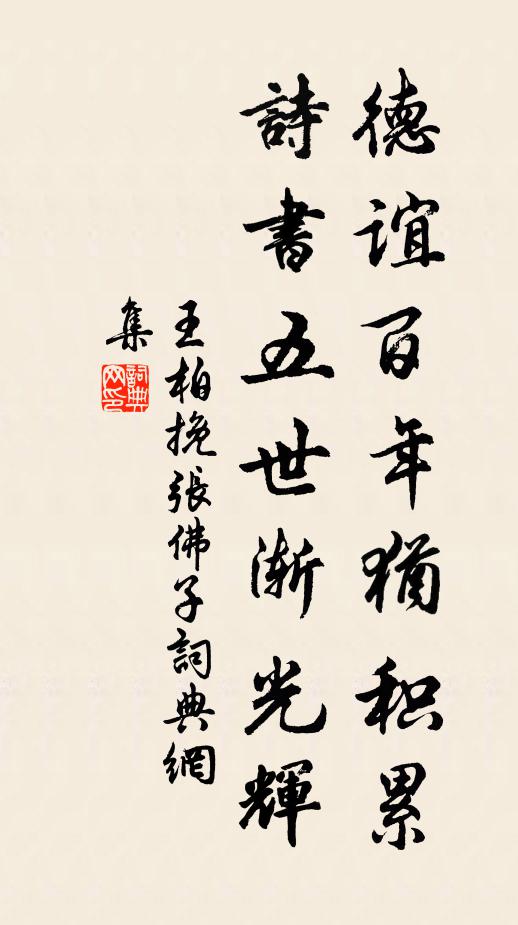 德谊百年猶积累
詩書五世渐光輝
王柏挽張佛子詞典網
集
詞典
网印